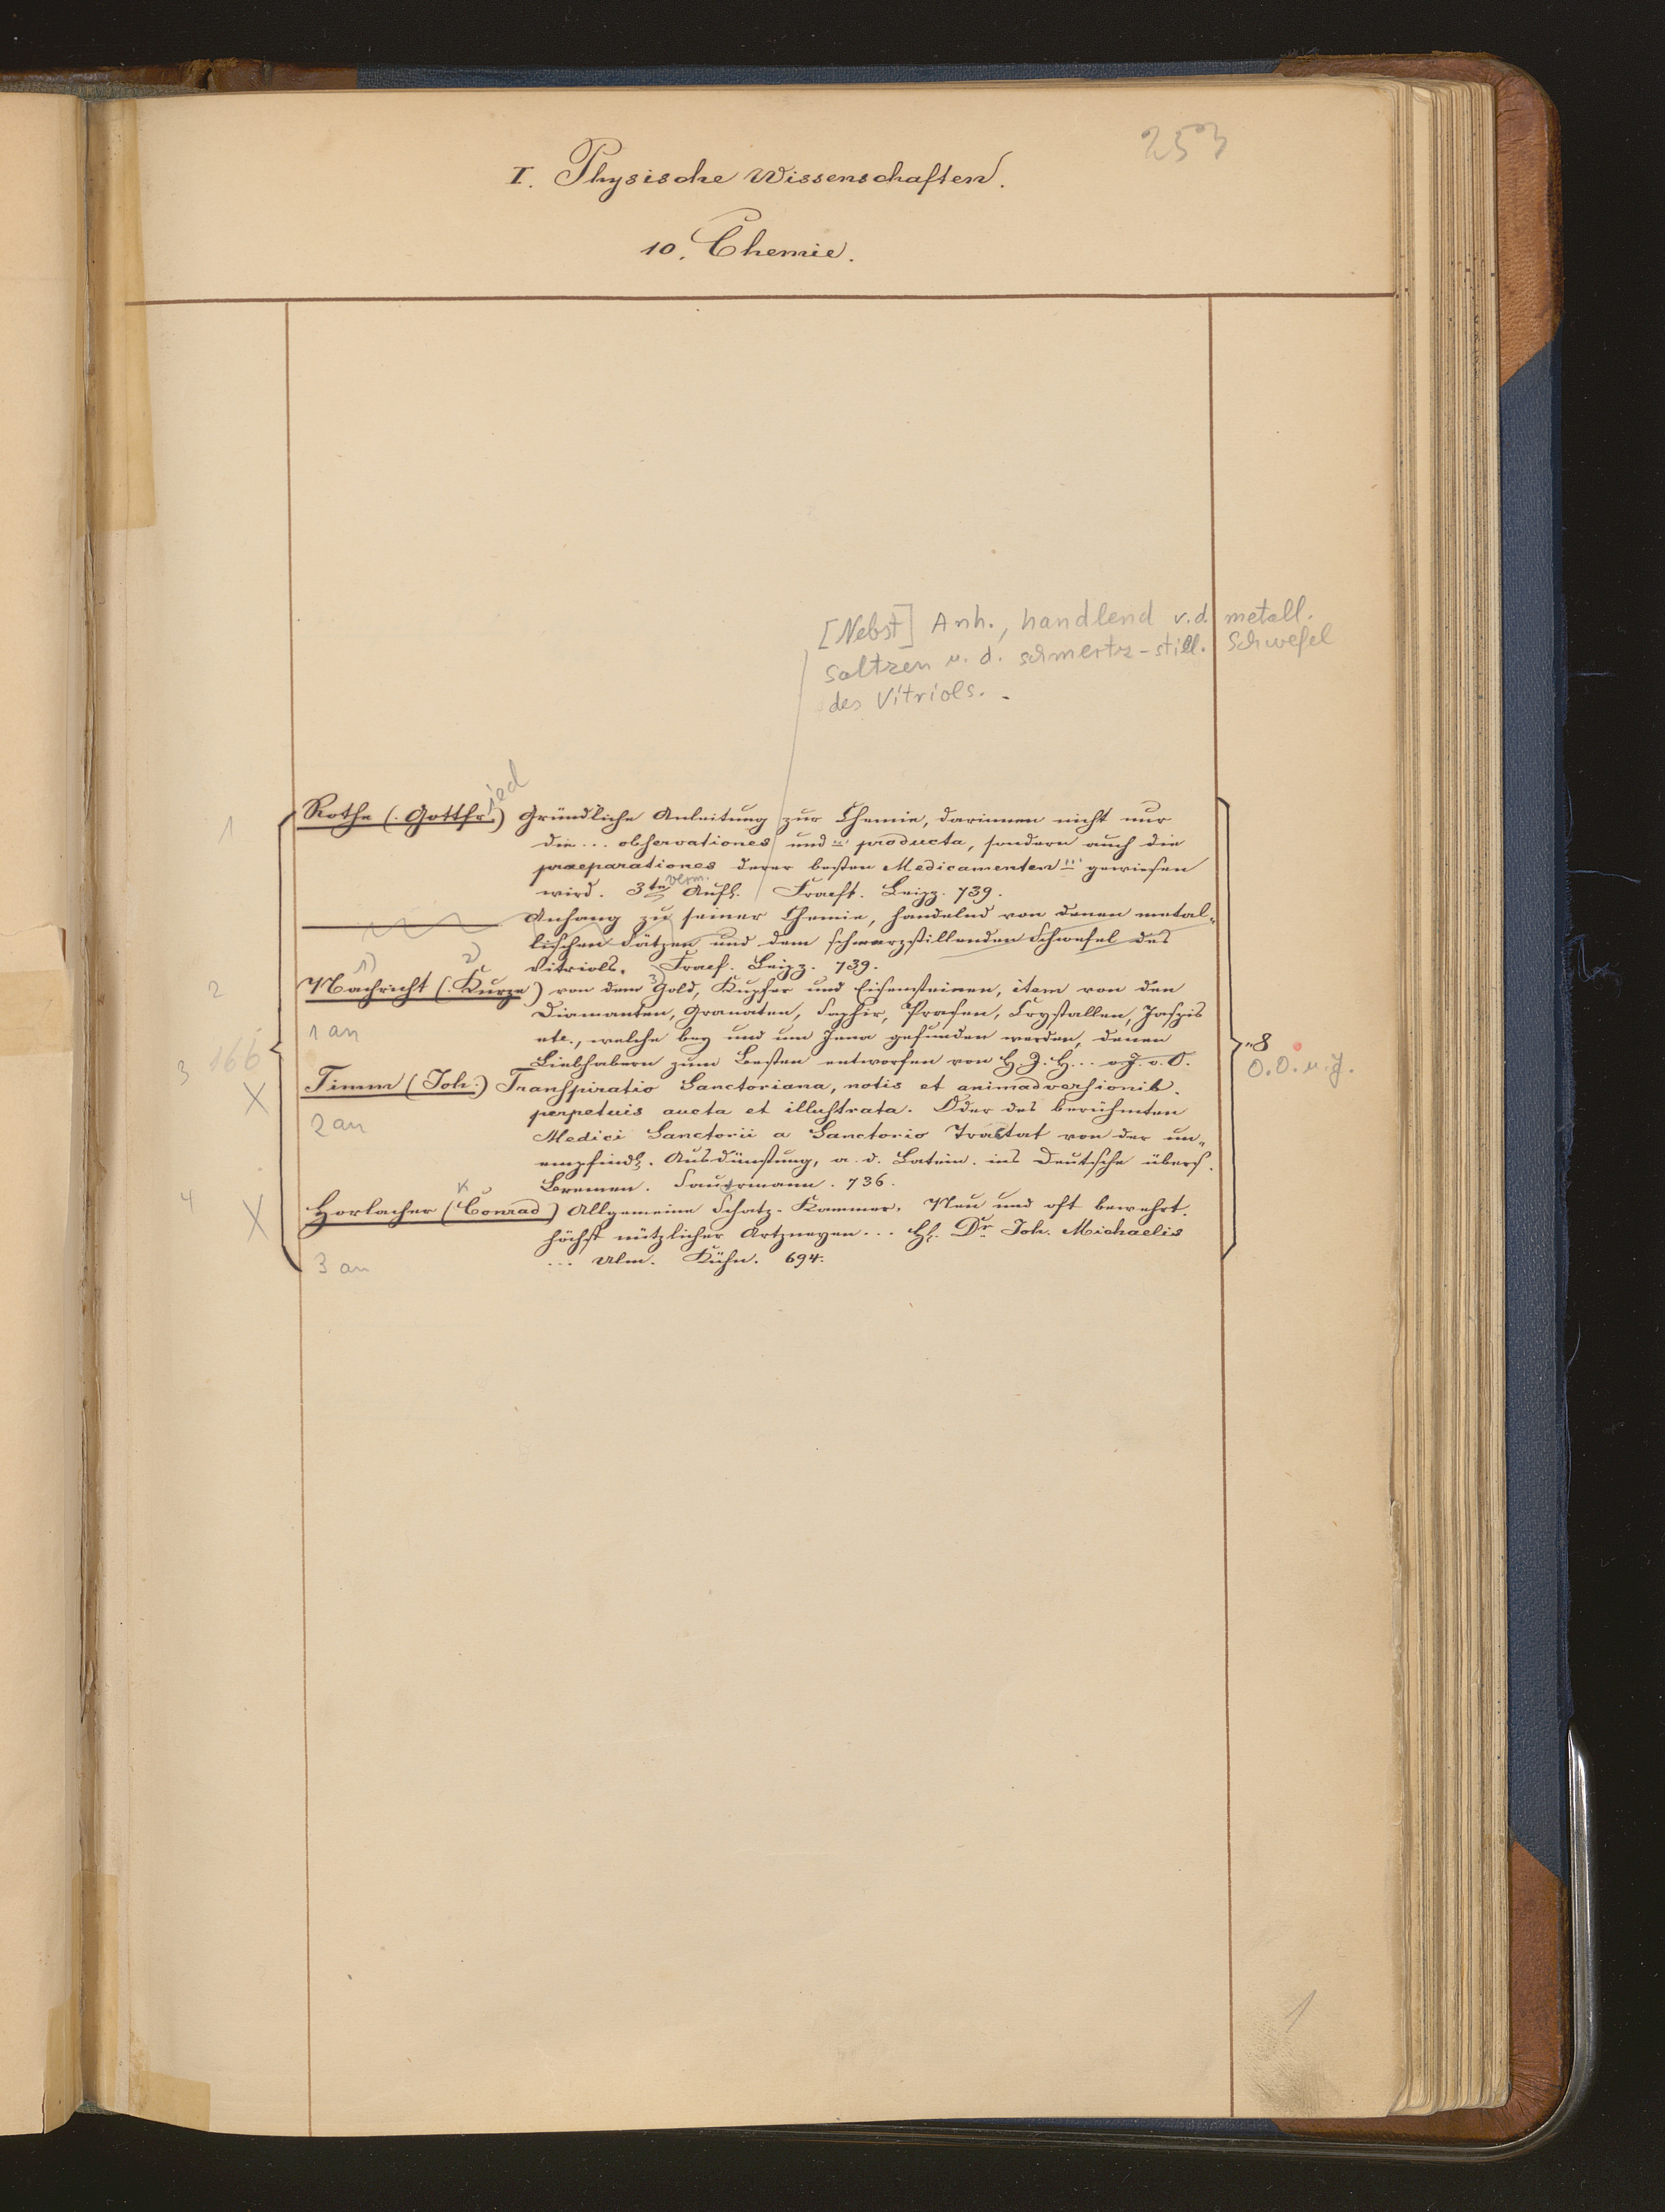 253
I. Physische Wissenschaften.
10. Chemie.
[Nebst] Anh., handlend v. d. metall.
saltzen u. d. schmertz-still. Schwefel
des Vitriols. -
ied
1 Rothe (Gottfr.) Gründliche Anleitung zur Chemie, darinnen nicht nur
die ... observationes und producta, sondern auch die
praeparationes derer besten Medicamenten gewiesen
verm.
wird. 3te Aufl. Leipz. 739.
Anhang zu seiner Chemie, handelnd von denen metal-
lischen Sätzen und dem schmerzstillenden Schwefel des
Vitriols. Leipz. 739.
1) 2)
2 Nachricht (Kurze) von dem 3) Gold, Kupfer und Eisensteinen, item von den
Diamanten, Granaten, Saphir, Prasen, Crystallen, Jaspis
1 an etc., welche bey und um Jena gefunden werden, denen
"8
Liebhabern zum Besten entworfen von H. J. H... o. J. o. O.
O. O. u. J.
3 166 Timm (Joh.) Transpiratio Sanctoriana, notis et animadversionib.
X perpetuis aucta et illustrata. Oder des berühmten
2 an Medici Sanctorii a Sanctorio Tractat von der un-
empfindl. Ausdünstung, a. d. Latein. ins Deutsche übers.
Bremen. Saurmann. 736.
K
4 X Horlacher (Conrad) Allgemeine Schatz-Kammer, Neu und oft bewehrt.
höchst nützlicher Artzneyen... H. Dr. Joh. Michaelis
3 an ... Ulm. Kühn. 694.
1